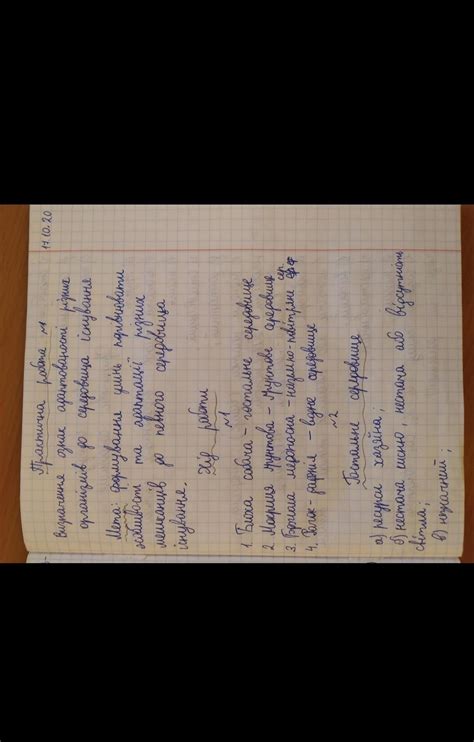 14.10.20
Практична робота №1
Визначення ознак адаптованості різних
організмів до середовища існування
Мета: формування умінь порівнювати
мінливість та адаптації різних
мешканців до певного середовища
існування.
Хід роботи
№1
1. Блоха собача – гостальне середовище
2. Мокриця ґрунтова – ґрунтове середовище
3. Бджола медоносна – наземно-повітряне сер.
4. – водне середовище
№2
Гостальне середовище
а) ресурси хазяїна;
б) нестача кисню, нестача або відсутність
світла;
в) незначний;